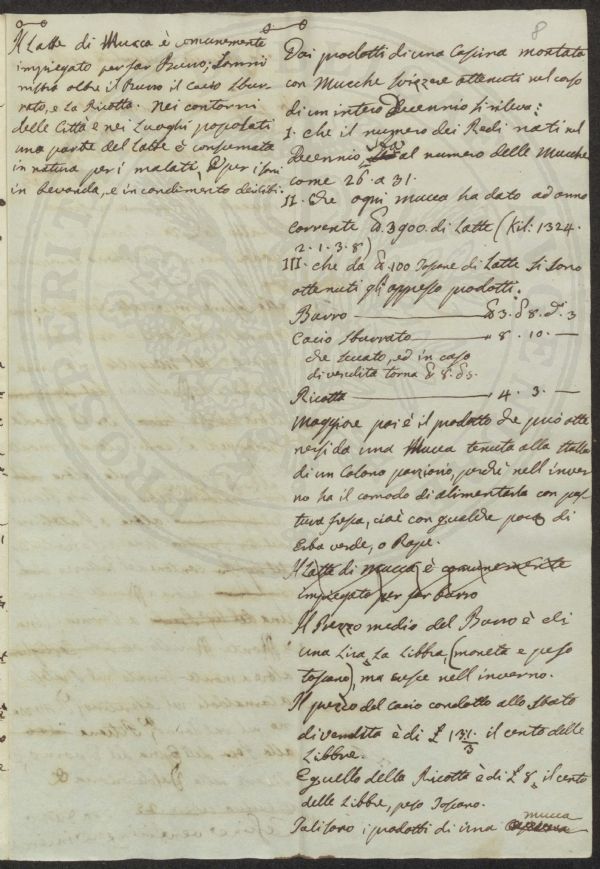 8
Il Latte di Mucca è comunemente
impiegato per far Burro;
oltre il Burro il Cacio Sbur-
rato, e la Ricotta. Nei contorni
delle Città e nei Luoghi popolati
una parte del Latte è consumata
in natura per i malati, e per i
in bevanda, e in condimento di cibi.
Dai prodotti di una Cascina montata
con Mucche Svizzere ottenuti nel corso
di un intero Decennio si rileva:
I. che il numero dei Redi nati nel
Decennio sta al numero delle Mucche
come 26 a 31.
II. che ogni mucca ha dato ad anno
corrente 3900 di Latte (Kil: 1324.
2. 1. 3. 8)
III. che da 100 Toscane di Latte si sono
ottenuti gli appresso prodotti.
Burro 3. 8. 3
Cacio Sburrato " 8. 10. —
che seccato, ed in caso
di vendita torna 8. 5.
Ricotta 4. 3. —
Maggiore poi è il prodotto che può otte
nersi da una Mucca tenuta alla Stalla
di un Colono parziario, perchè nell'inver
no ha il comodo di alimentarla con pas
tura fresca, cioè con qualche poco di
Erba verde, o Rape.
Il Latte di mucca è comunemente
impiegato per far burro
Il Prezzo medio del Burro è di
una Lira La Libbra, (moneta e peso
toscano), ma cresce nell'inverno.
Il prezzo del cacio condotto allo stato
di vendita è di £ 13 1/3 il cento delle
Libbre.
E quello della Ricotta è di £ 8, il cento
delle Libbre, peso Toscano.
Tali sono i prodotti di una mucca